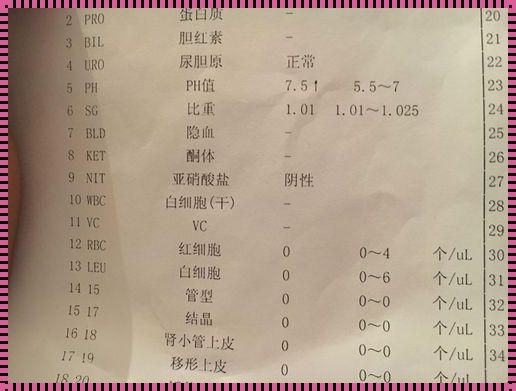 2 PRO 蛋白质 - 20
3 BIL 胆红素 - 21
4 URO 尿胆原 正常 22
5 PH PH值 7.5↑ 5.5～7 23
6 SG 比重 1.01 1.01～1.025 24
7 BLD 隐血 - 25
8 KET 酮体 - 26
9 NIT 亚硝酸盐 阴性 27
10 WBC 白细胞(干) - 28
11 VC VC - 29
12 RBC 红细胞 0 0～4 个/uL 30
13 LEU 白细胞 0 0～6 个/uL 31
14 15 管型 0 0～0 个/uL 32
15 17 结晶 0 0～0 个/uL 33
16 18 肾小管上皮 0 0～0 个/uL 34
17 19 移形上皮 0 0～0 个/uL
18 20